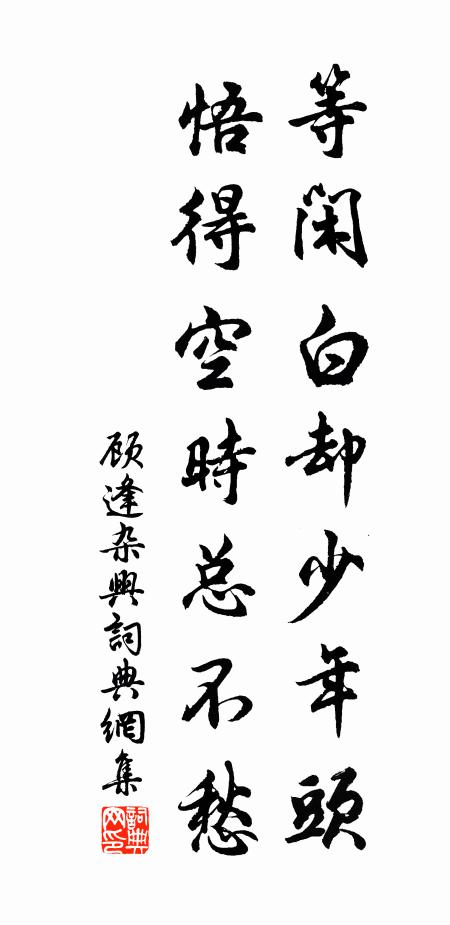 等閑白却少年頭
悟得空時总不愁
顾逢杂興詞典網集
詞典网印